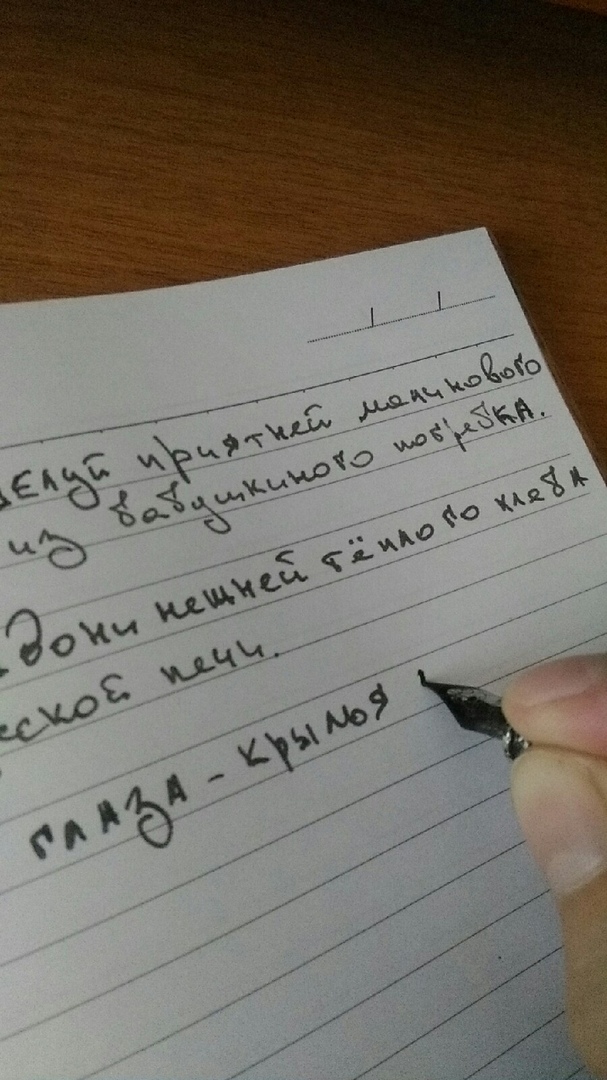 целуй приятней малинового
из бабушкиного погребка.
дони нежней тёплого хлеба
еской печи.
глаза - крылья